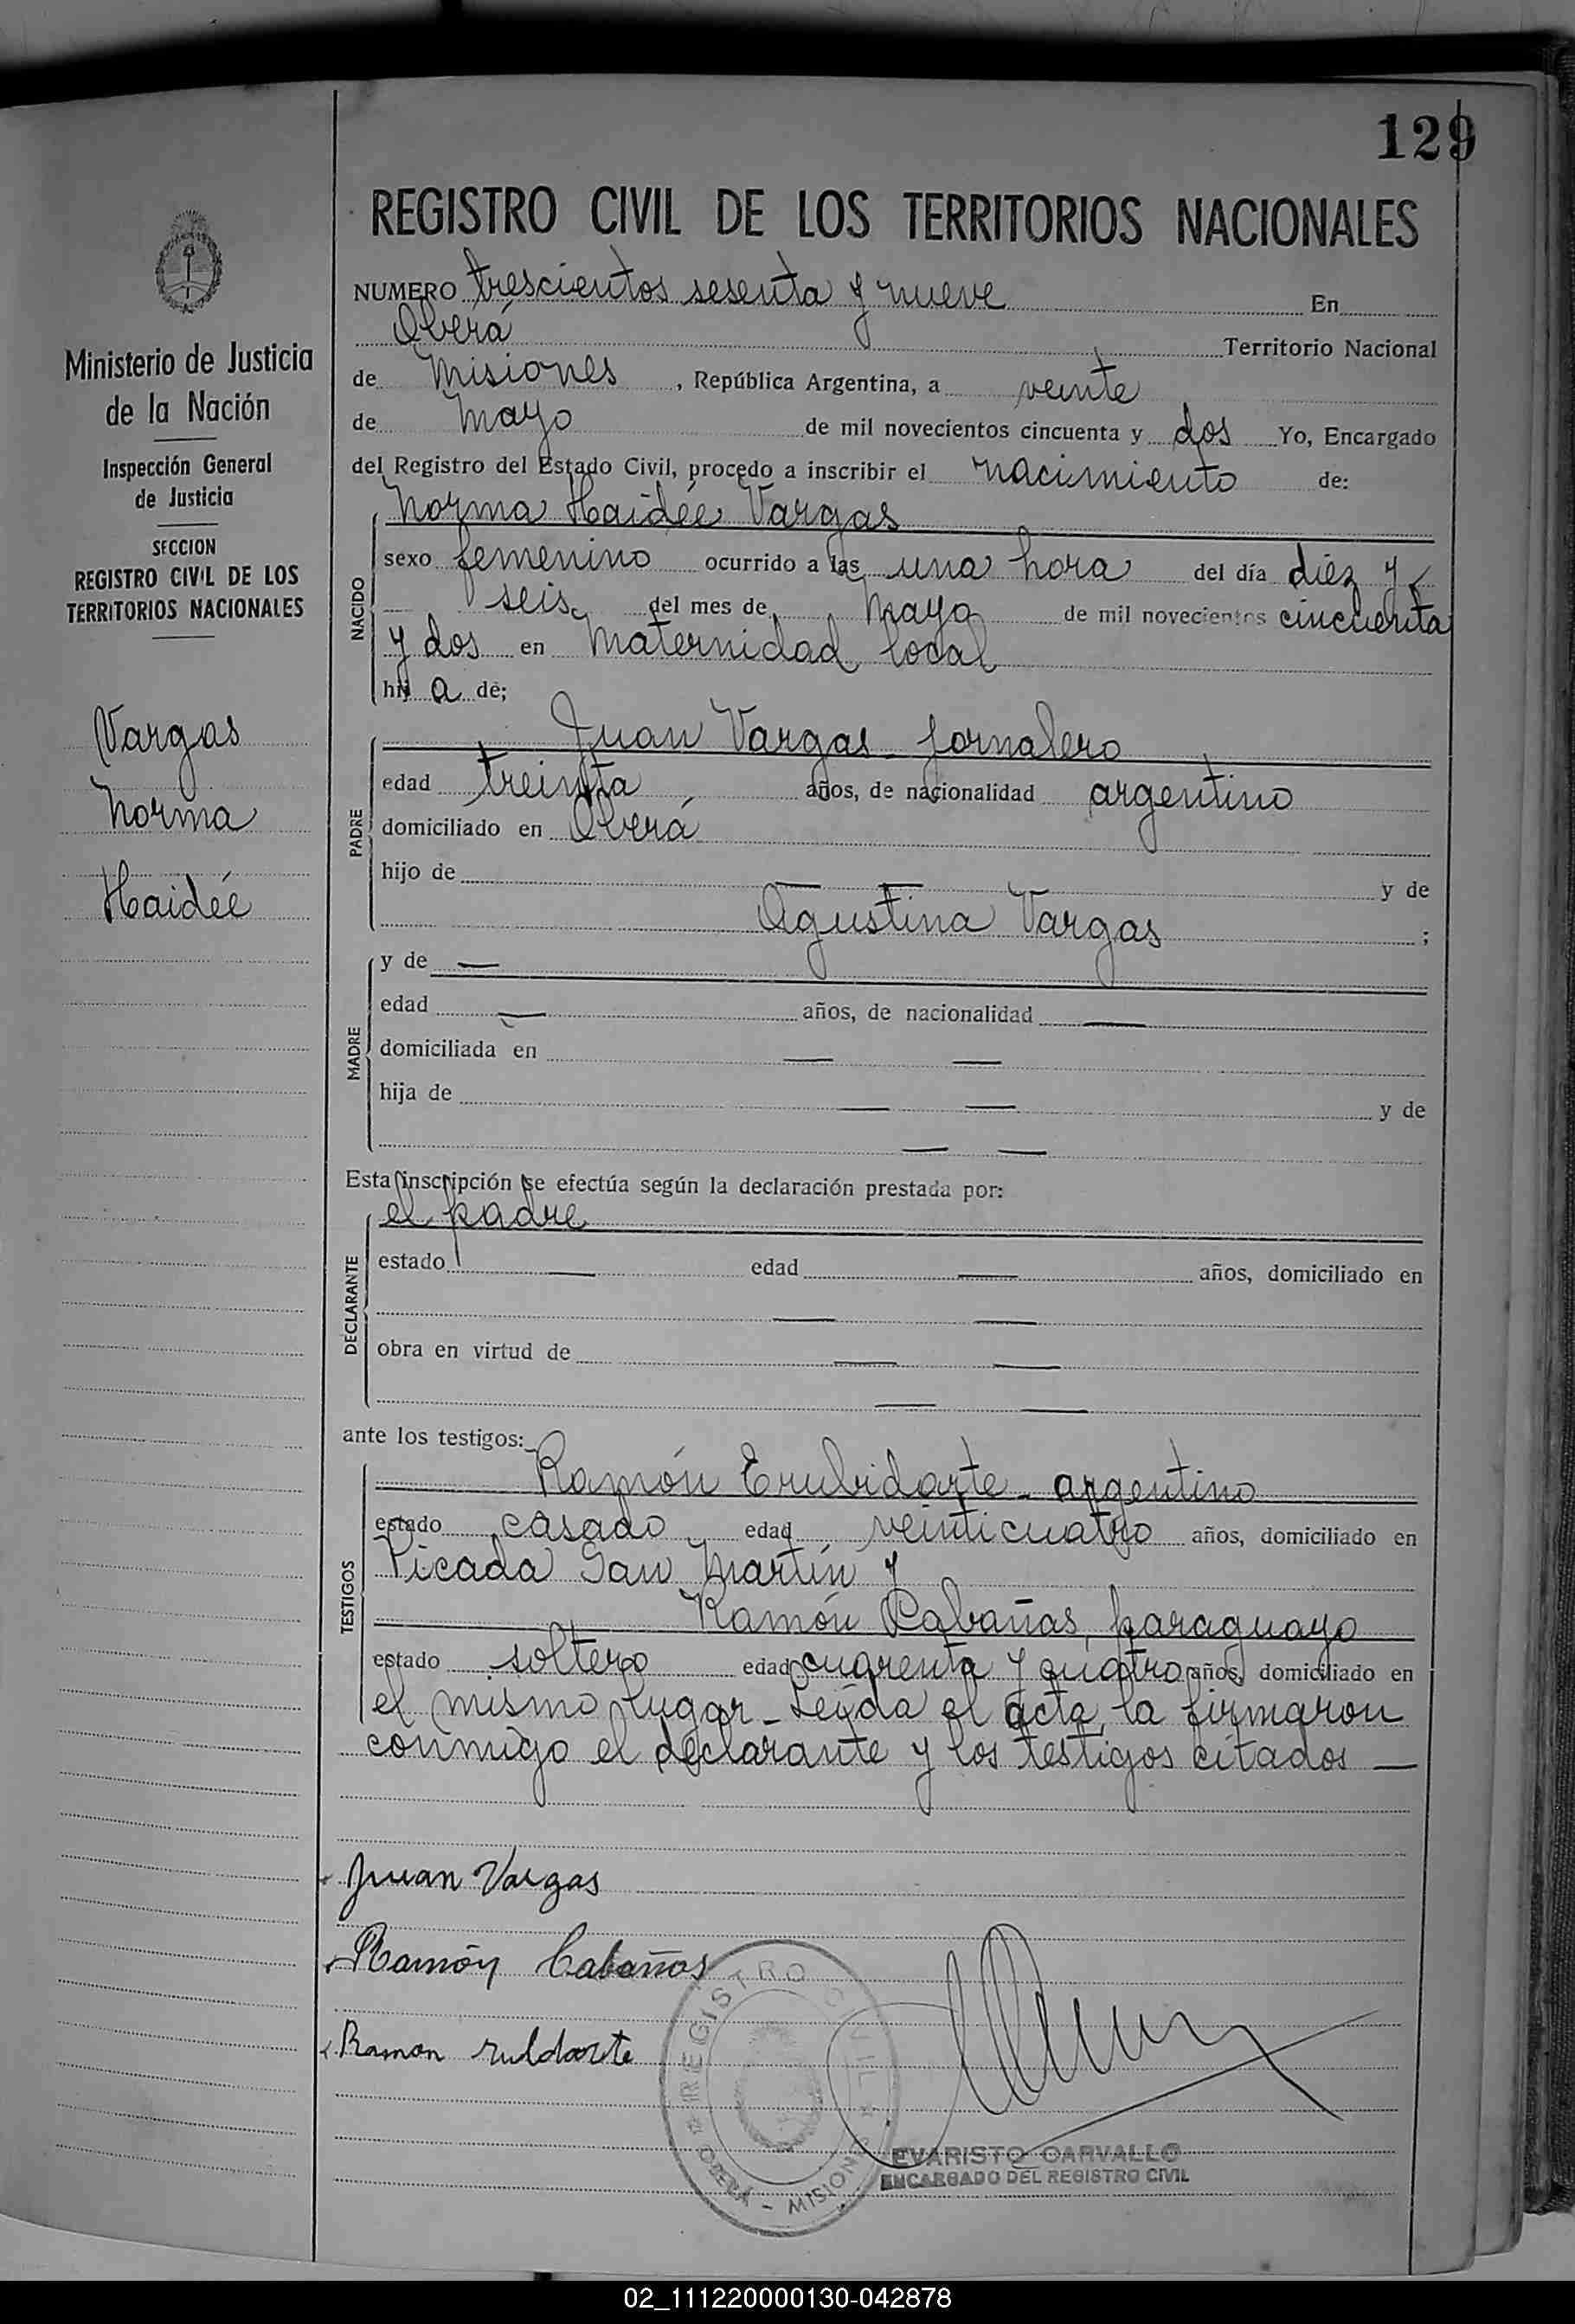 129
REGISTRO CIVIL DE LOS TERRITORIOS NACIONALES
Ministerio de Justicia
de la Nación
Inspección General
de Justicia
SECCION
REGISTRO CIVIL DE LOS
TERRITORIOS NACIONALES
Vargas
Norma
Haidée
NUMERO trescientos sesenta y nueve En
Oberá Territorio Nacional
de Misiones, República Argentina, a veinte
de Mayo de mil novecientos cincuenta y dos Yo, Encargado
del Registro del Estado Civil, procedo a inscribir el nacimiento de:
NACIDO
Norma Haidée Vargas
sexo femenino ocurrido a las una hora del día diez y
seis del mes de Mayo de mil novecientos cincuenta
y dos en Maternidad local
hij a de;
PADRE
Juan Vargas - jornalero
edad treinta años, de nacionalidad argentino
domiciliado en Oberá
hijo de — — y de
Agustina Vargas ;
MADRE
y de —
edad — años, de nacionalidad —
domiciliada en — —
hija de — — y de
— —
Esta inscripción se efectúa según la declaración prestada por:
DECLARANTE
el padre
estado — edad — años, domiciliado en
— —
obra en virtud de — —
— —
ante los testigos:
TESTIGOS
Ramón Erubidarte - argentino
estado casado edad veinticuatro años, domiciliado en
Picada San Martín y
Ramón Cabañas, paraguayo
estado soltero edad cuarenta y cuatro años, domiciliado en
el mismo lugar - Leída el acta, la firmaron
conmigo el declarante y los testigos citados —
Juan Vargas
Ramón Cabañas
Ramon
REGISTRO CIVIL
OBERÁ - MISIONES
EVARISTO CARVALLO
ENCARGADO DEL REGISTRO CIVIL
02_111220000130-042878